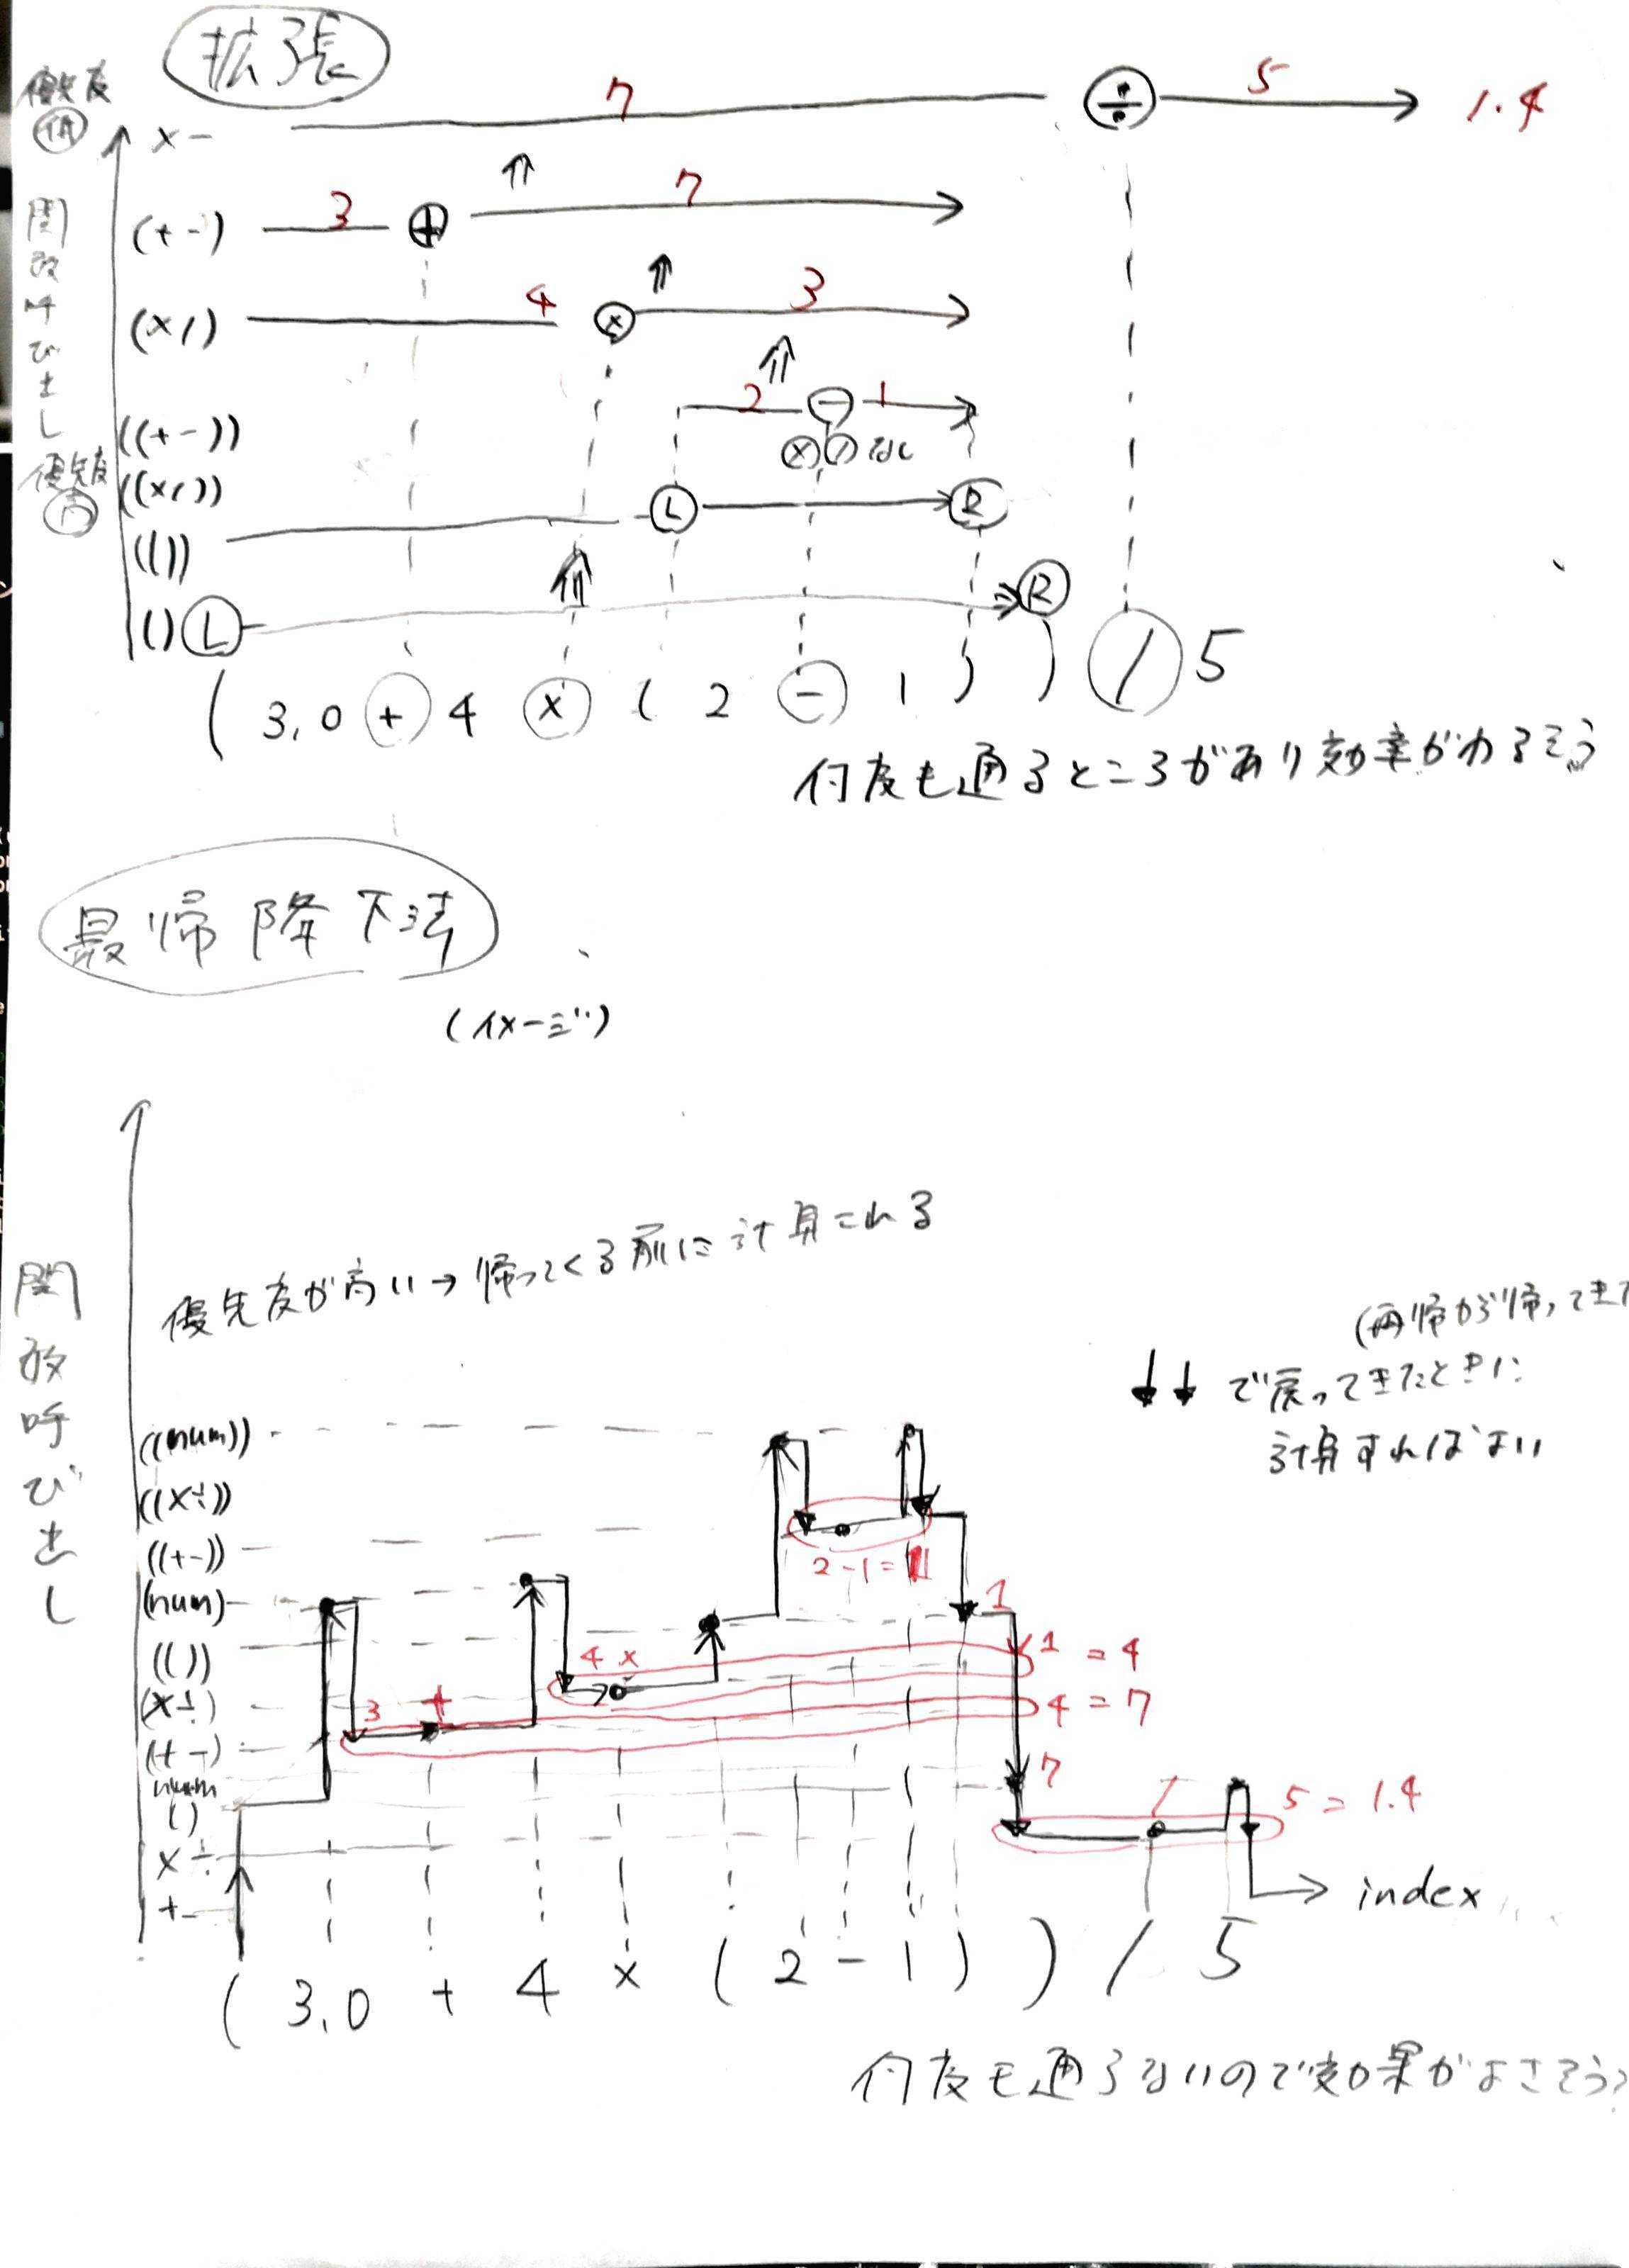 拡張
優先度
低
関数呼び出し
優先度
高
×- 7 ÷ 5 1.4
(+-) 3 + 7
(×/) 4 × 3
((+-)) 2 - 1
×/なし
((×/))
(()) L R
() L R
(3.0+4×(2-1))/5
何度も通るところがあり効率がわるそう
最帰降下法
(イメージ)
関数呼び出し
優先度が高い→帰ってくる前に計算される
(再帰から帰ってきた
↓↓で戻ってきたときに
計算すればよい
((num))
((×÷))
((+-)) 2-1=1
(num) 1
(()) 4× 1=4
(×÷) 3 + 4=7
(+-)
num 7
() / 5=1.4
×÷
+- index
(3.0+4×(2-1))/5
何度も通らないので効果がよさそう